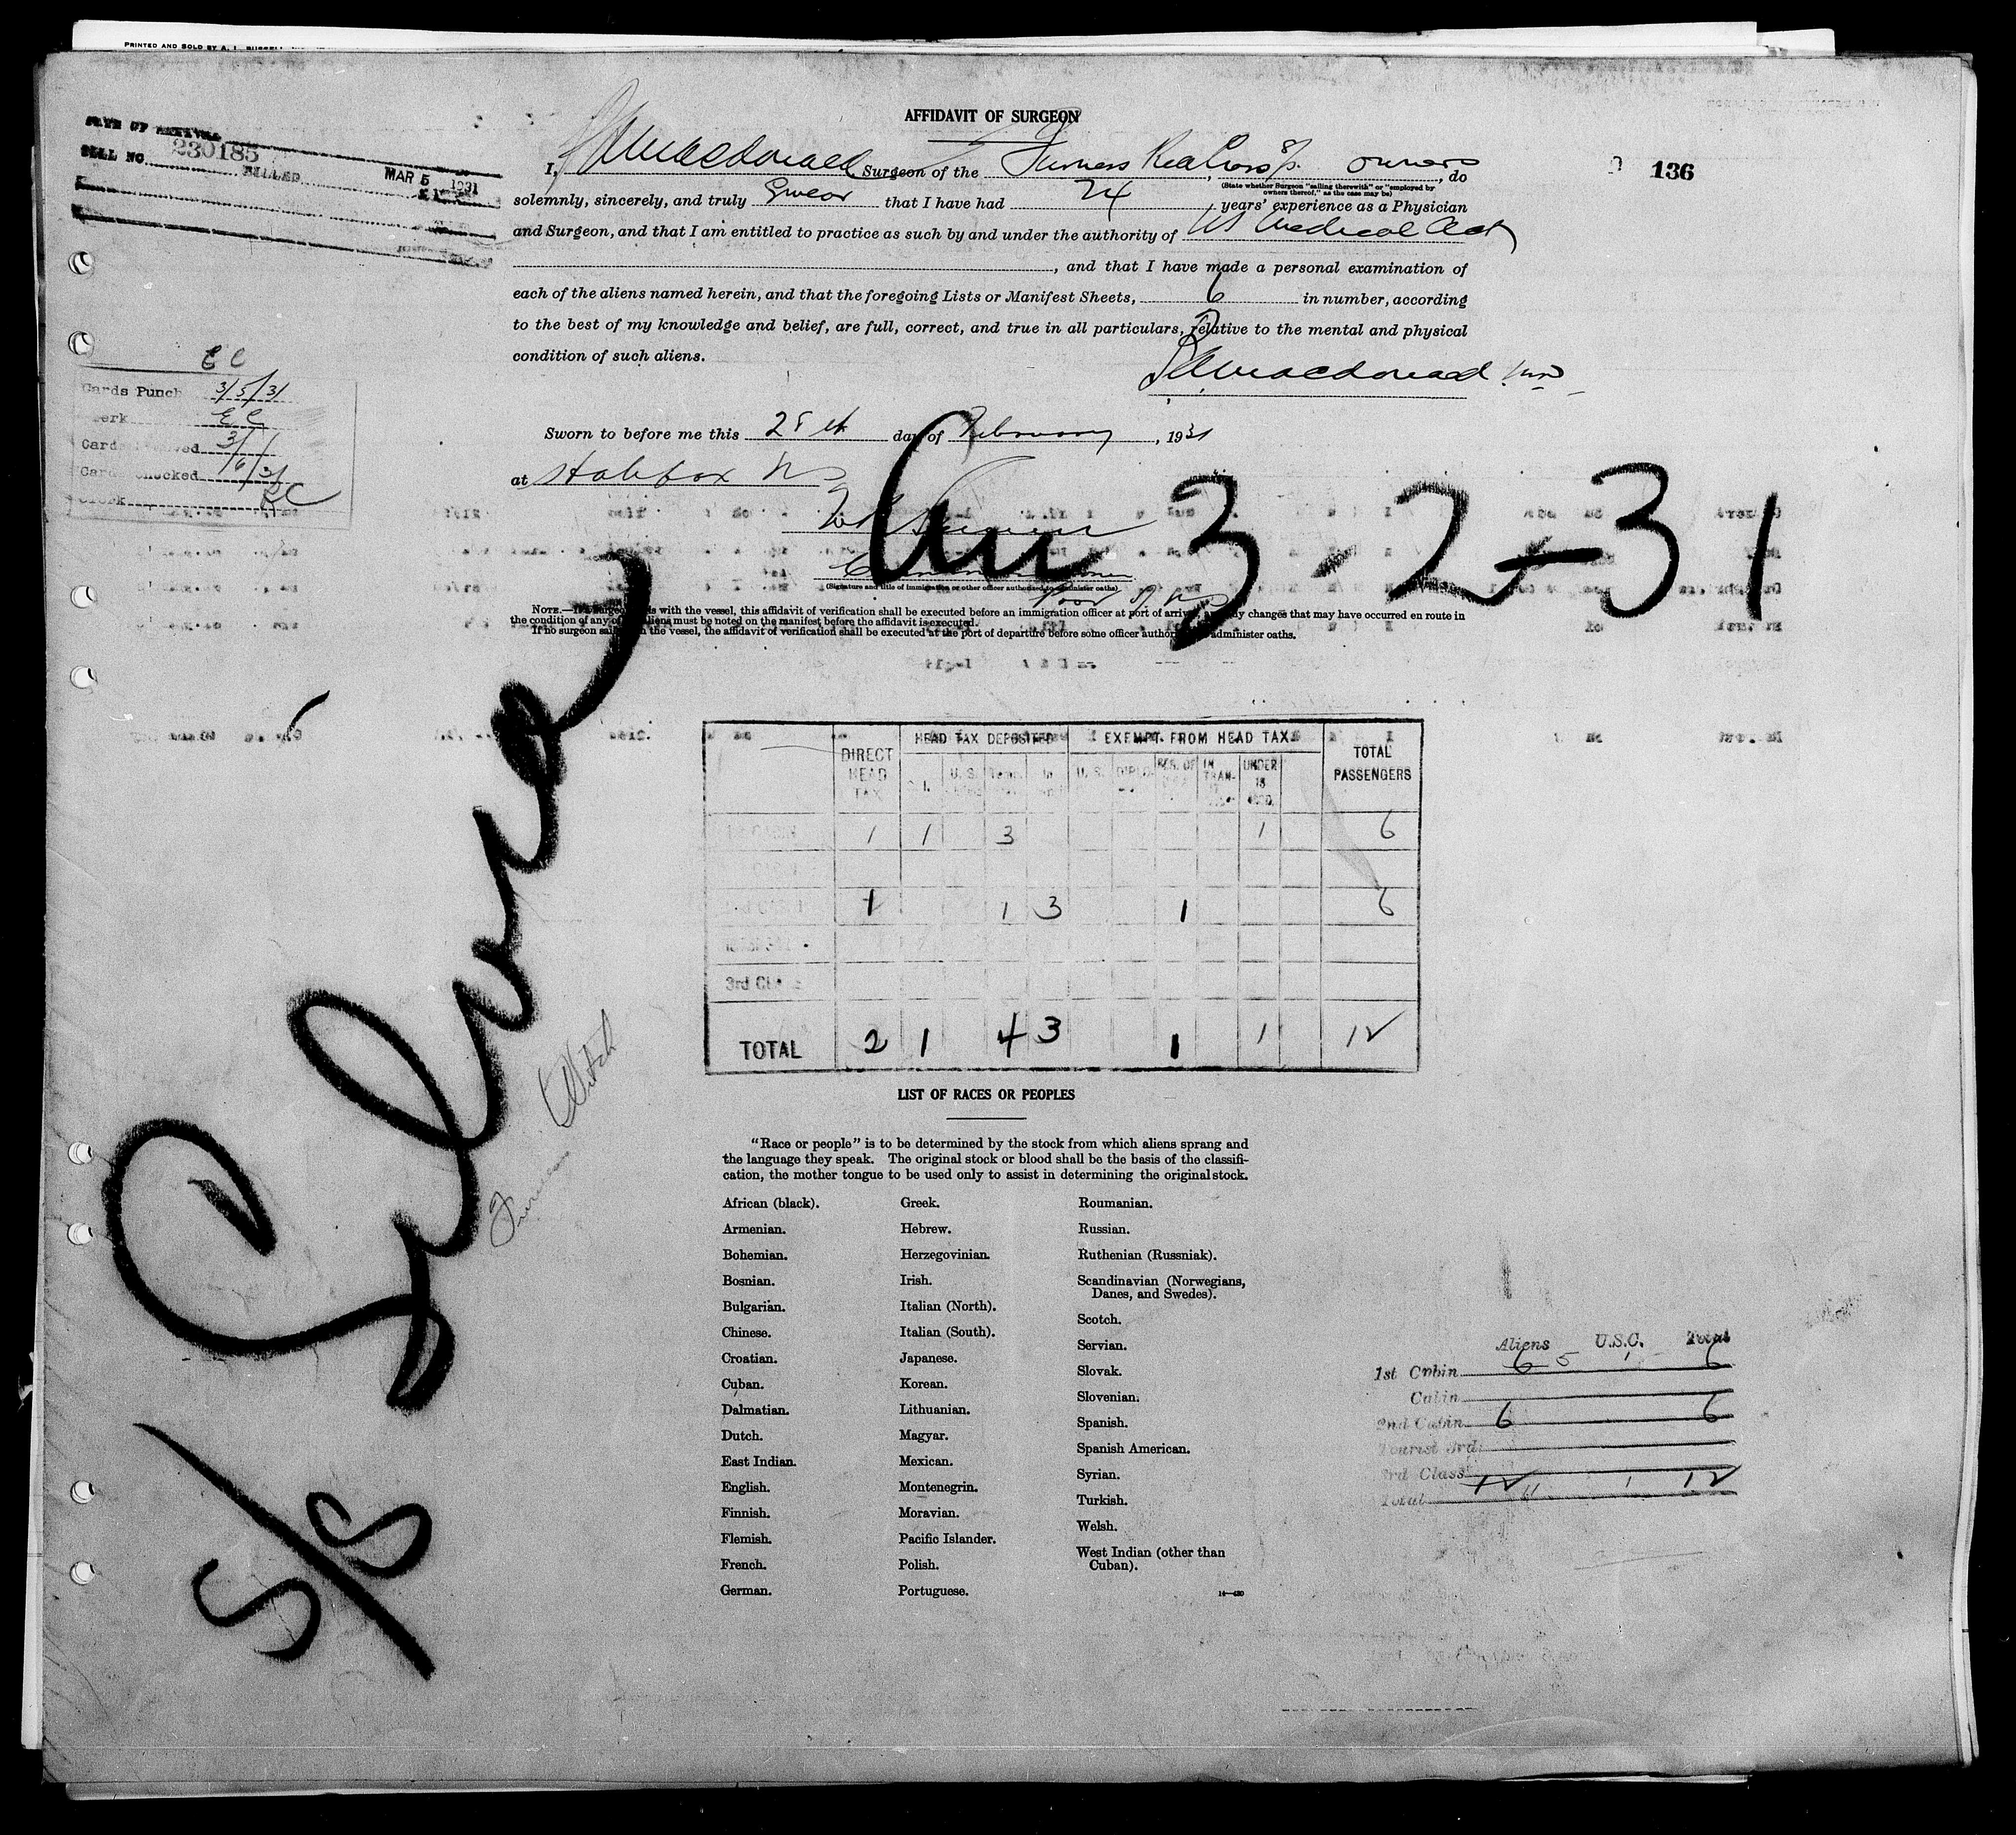 PRINTED AND SOLD BY A. L.
BILL NO. 230185
BILLED MAR 5 1931
136
AFFIDAVIT OF SURGEON
I, Macdonald Surgeon of the Furness Red Cross owners, do
(State whether Surgeon "sailing therewith" or "employed by
owners thereof," as the case may be)
solemnly, sincerely, and truly swear that I have had 24 years' experience as a Physician
and Surgeon, and that I am entitled to practice as such by and under the authority of NS Medical Act
, and that I have made a personal examination of
each of the aliens named herein, and that the foregoing Lists or Manifest Sheets, 6 in number, according
to the best of my knowledge and belief, are full, correct, and true in all particulars, relative to the mental and physical
condition of such aliens.
Macdonald MD
E C
Cards Punch 3/5/31
Clerk E C
Card 3/6/31
Cards Checked
Clerk
Sworn to before me this 28th day of February, 1931
at Halifax NS
(Signature and title of immigration or other officer authorized to administer oaths)
Arr 3-2-31
NOTE.—If a surgeon sails with the vessel, this affidavit of verification shall be executed before an immigration officer at port of arrival, and any changes that may have occurred en route in
the condition of any of the aliens must be noted on the manifest before the affidavit is executed.
If no surgeon sails on the vessel, the affidavit of verification shall be executed at the port of departure before some officer authorized to administer oaths.
S/S Silvia
Furness Witch
DIRECT HEAD TAX HEAD TAX DEPOSITED EXEMPT FROM HEAD TAX TOTAL PASSENGERS
U.S. U.S. DIPLO RES. OF IN TRAN- UNDER 16
1 1 3 1 6
1 1 3 1 6
3rd Class
TOTAL 2 1 4 3 1 1 12
LIST OF RACES OR PEOPLES
"Race or people" is to be determined by the stock from which aliens sprang and
the language they speak. The original stock or blood shall be the basis of the classifi-
cation, the mother tongue to be used only to assist in determining the original stock.
African (black).
Armenian.
Bohemian.
Bosnian.
Bulgarian.
Chinese.
Croatian.
Cuban.
Dalmatian.
Dutch.
East Indian.
English.
Finnish.
Flemish.
French.
German.
Greek.
Hebrew.
Herzegovinian.
Irish.
Italian (North).
Italian (South).
Japanese.
Korean.
Lithuanian.
Magyar.
Mexican.
Montenegrin.
Moravian.
Pacific Islander.
Polish.
Portuguese.
Roumanian.
Russian.
Ruthenian (Russniak).
Scandinavian (Norwegians,
Danes, and Swedes).
Scotch.
Servian.
Slovak.
Slovenian.
Spanish.
Spanish American.
Syrian.
Turkish.
Welsh.
West Indian (other than
Cuban).
Aliens U.S.C. Total
1st Cabin 6 5 1 6
Cabin
2nd Cabin 6 6
Tourist 3rd
3rd Class
Total 12 11 1 12